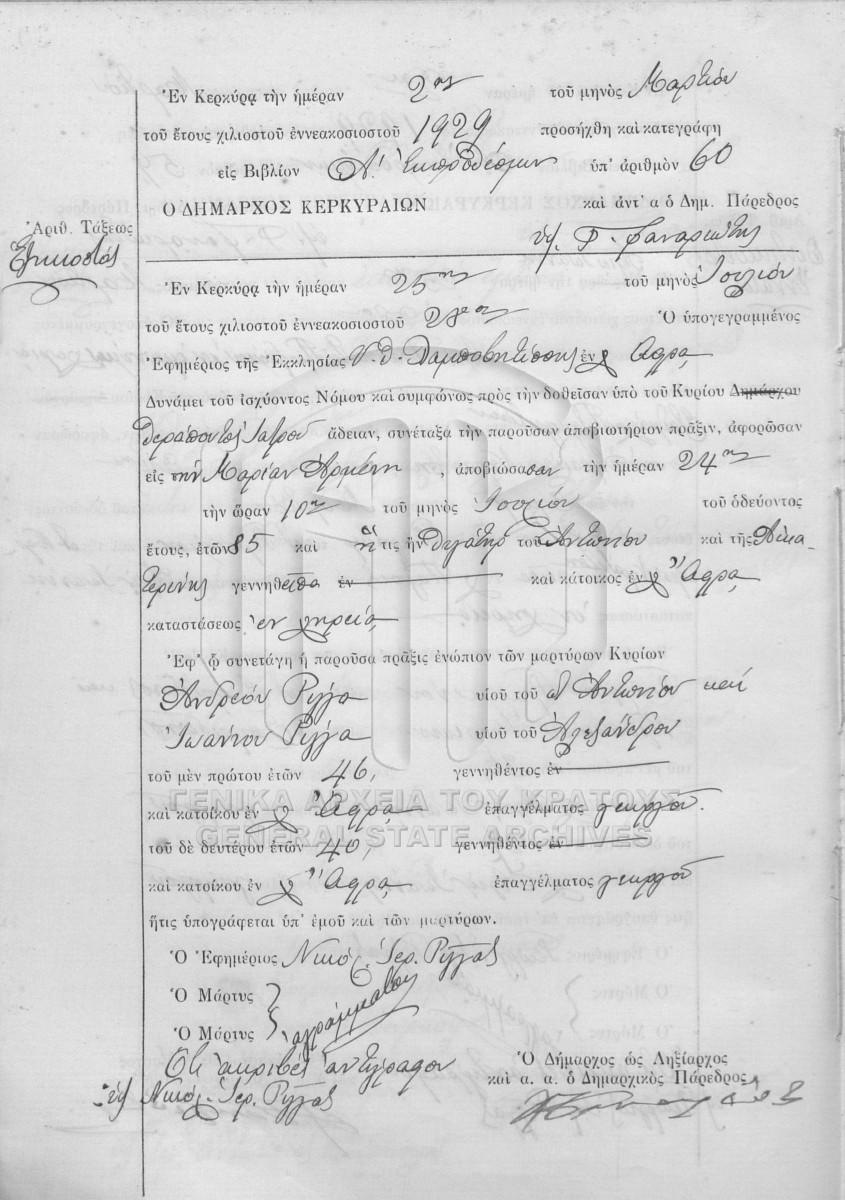 Ἐν Κερκύρᾳ τὴν ἡμέραν 2ας τοῦ μηνὸς Μαρτίου
τοῦ ἔτους χιλιοστοῦ ἐννεακοσιοστοῦ 1929 προσήχθη καὶ κατεγράφη
εἰς Βιβλίον Α' Ἐκπροθέσμων ὑπ' ἀριθμὸν 60
Ο ΔΗΜΑΡΧΟΣ ΚΕΡΚΥΡΑΙΩΝ καὶ ἀντ' α ὁ Δημ. Πάρεδρος
Ἀριθ. Τάξεως
Φαναριώτης
Ἐν Κερκύρᾳ τὴν ἡμέραν 25ην τοῦ μηνὸς Ἰουλίου
τοῦ ἔτους χιλιοστοῦ ἐννεακοσιοστοῦ Ὁ ὑπογεγραμμένος
Ἐφημέριος τῆς Ἐκκλησίας ἐν Ἀφρᾳ
Δυνάμει τοῦ ἰσχύοντος Νόμου καὶ συμφώνως πρὸς τὴν δοθεῖσαν ὑπὸ τοῦ Κυρίου Δημάρχου
θεράποντος Ἰατροῦ ἄδειαν, συνέταξα τὴν παροῦσαν ἀποβιωτήριον πρᾶξιν, ἀφορῶσαν
εἰς τὴν Μαρίαν Ἀρμένη, ἀποβιώσασαν τὴν ἡμέραν 24ην
τὴν ὥραν 10ην τοῦ μηνὸς Ἰουλίου τοῦ ὁδεύοντος
ἔτους, ἐτῶν 85 καὶ ἥτις ἦν θυγάτηρ τοῦ Ἀντωνίου καὶ τῆς Αἰκα-
τερίνης γεννηθεῖσα ἐν καὶ κάτοικος ἐν Ἄφρᾳ
καταστάσεως ἐν χηρείᾳ
Ἐφ' ᾧ συνετάγη ἡ παροῦσα πρᾶξις ἐνώπιον τῶν μαρτύρων Κυρίων
Ἀνδρέου Ρίγγα υἱοῦ τοῦ Ἀντωνίου καὶ
Ἰωάννου Ρίγγα υἱοῦ τοῦ Ἀλεξάνδρου
τοῦ μὲν πρώτου ἐτῶν 46, γεννηθέντος ἐν
ΓΕΝΙΚΑ ΑΡΧΕΙΑ ΤΟΥ ΚΡΑΤΟΥΣ
καὶ κατοίκου ἐν Ἄφρᾳ ἐπαγγέλματος γεωργοῦ.
GENERAL STATE ARCHIVES
τοῦ δὲ δευτέρου ἐτῶν 40, γεννηθέντος ἐν
καὶ κατοίκου ἐν Ἄφρᾳ ἐπαγγέλματος γεωργοῦ
ἥτις ὑπογράφεται ὑπ' ἐμοῦ καὶ τῶν μαρτύρων.
Ὁ Ἐφημέριος Νικόλ. Ἱερ. Ρίγγας
Ὁ Μάρτυς
Ὁ Μάρτυς ἀγράμματοι
Ὅτι ἀκριβὲς ἀντίγραφον
Ὁ Δήμαρχος ὡς Ληξίαρχος
καὶ α. α. ὁ Δημαρχικὸς Πάρεδρος
Νικόλ. Ἱερ. Ρίγγας